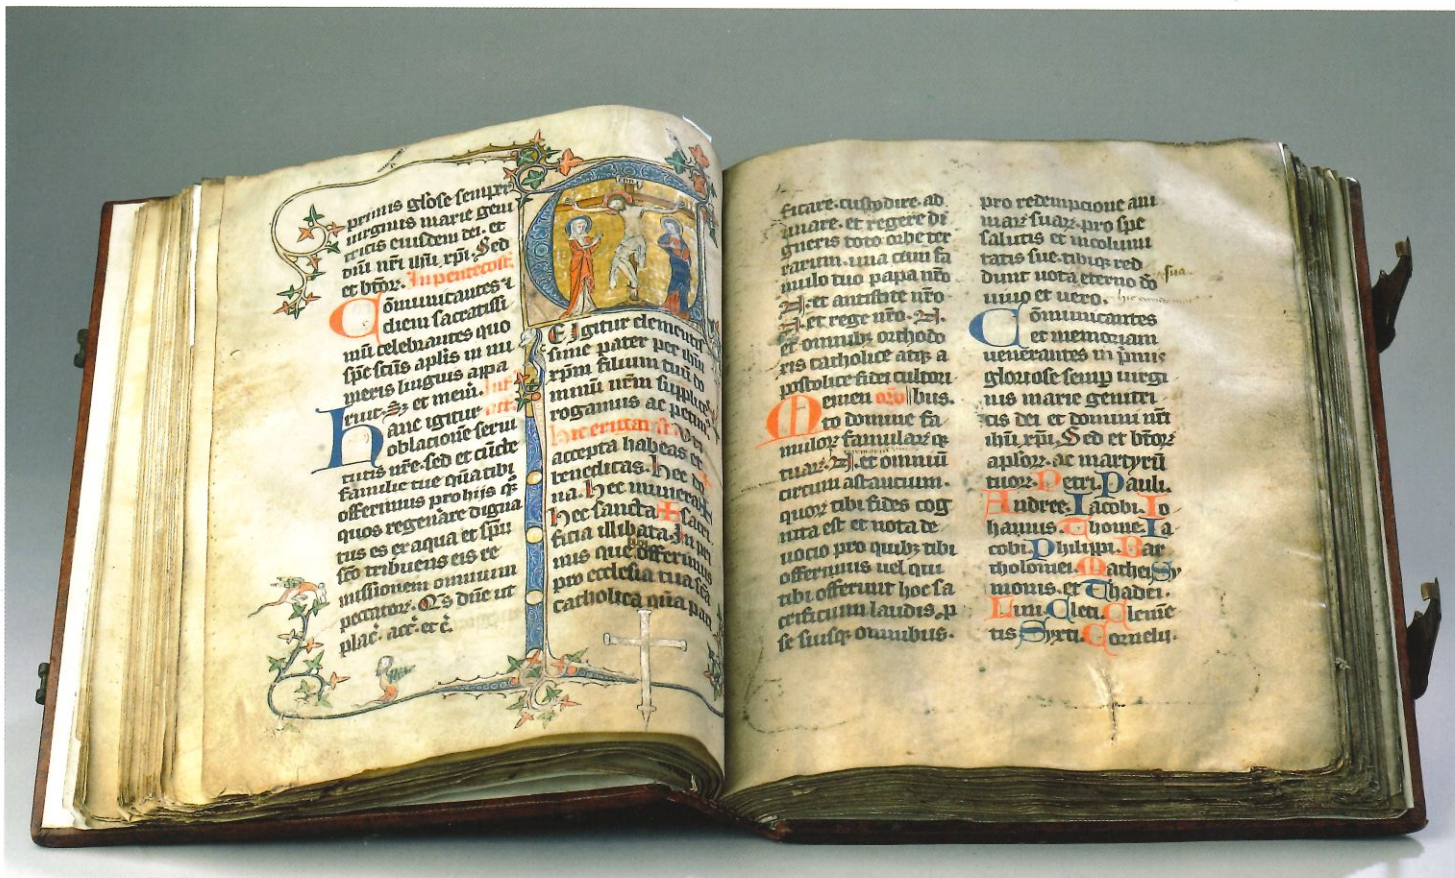 primis gl̃ose semper
uirginis marie geni
tricis eiusdem dei. et
dñi nr̃i ihũ xp̃i. Sed
et btõr. In pentecost̃
Cõmunicantes ⁊
diem sacratissi
mũ celebrantes quo
sp̃c sc̃us aplĩs in nu
meris linguis appa
ruit. S; et mem̃. Inf̃
hanc igitur act̃.
oblacionẽ serui
tutis nr̃e. sed et cũcte
familie tue quã tibi
offerimus pro hijs q̃
quos regenãre digna
tus es ex aqua et sp̃u
sc̃o tribuens eis re
missionem omnium
peccatoꝝ. Q̃s dñe ut
plac̃. acc̃. et c̃.
TE Igitur clementis
sime pater per ihũ
xp̃m filium tuũ do
minũ nr̃m supplices
rogamus ac petim̃
hic erigat se Uti
accepta habeas et
benedicas. hec do
na. hec munera
hec sancta sacri
ficia illibata. In pri
mis que offerimus
pro ecclesia tua sc̃a
catholica quã paci
ficare. custodire. ad
unare. et regere di
gneris toto orbe ter
rarum. una cum fa
mulo tuo papa nr̃o
.N. et antistite nr̃o.
.N. et rege nr̃o .N.
et omnibꝫ orthodo
xis catholice atqꝫ a
postolice fidei cultori
Memen or̃o bus.
to domine fa
muloꝝ famulaꝝ qꝫ
tuaꝝ .N. et omniũ
circum astancium.
quoꝝ tibi fides cog
nita est et nota de
uocio pro quibꝫ tibi
offerimus uel qui
tibi offerunt hoc sa
crificium laudis. ꝓ
se suisqꝫ omnibus.
pro redempcione ani
maꝝ suaꝝ. pro spe
salutis et incolumi
tatis sue. tibiqꝫ red
dunt uota eterno dõ sua
uiuo et uero.
Cõmunicantes
et memoriam
uenerantes in p̃mis
gloriose semp̃ uirgi
nis marie genitri
cis dei et domini nr̃i
ihũ xp̃i. Sed et btõꝝ
aplõꝝ. ac martyrũ
tuoꝝ. Petri. Pauli.
Andree. Iacobi. Io
hannis. Thome. Ia
cobi. Philippi. Bar
tholomei. Mathei Sy
monis. et Thadei.
Lini. Cleti. Clemẽ
tis Syxti. Cornelij.